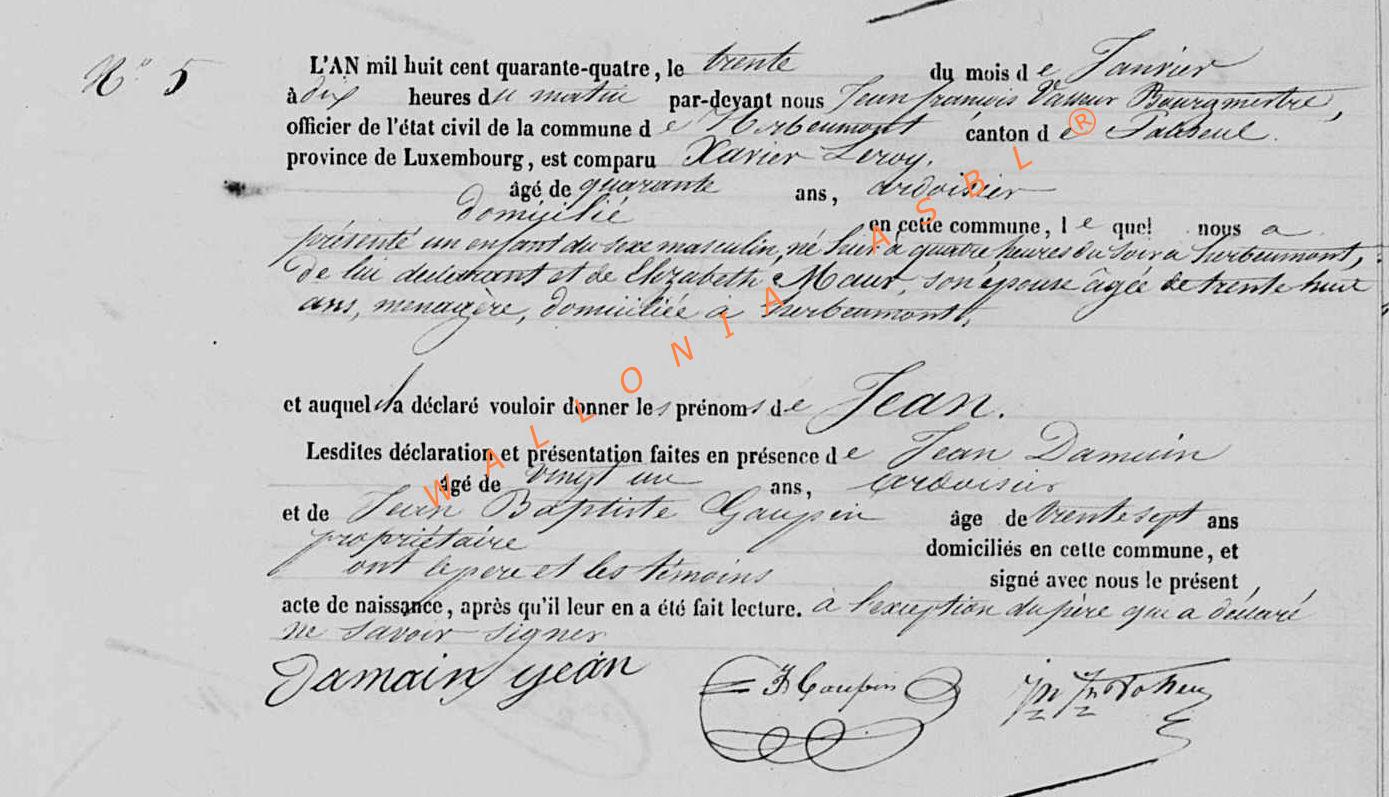 N° 5
L'AN mil huit cent quarante-quatre, le trente du mois de Janvier
à dix heures du matin par-devant nous Jean françois Bourgmestre,
officier de l'état civil de la commune de Herbeumont canton de Paliseul.
province de Luxembourg, est comparu Xavier Leroy.
âgé de quarante ans, ardoisier
domicilié en cette commune, le quel nous a
présenté un enfant du sexe masculin, né hier à quatre heures du soir a herbeumont,
de lui déclarant et de Elizabeth son épouse âgée de trente huit
ans, menagère, domiciliée à herbeumont,
et auquel il a déclaré vouloir donner les prénoms de Jean.
Lesdites déclaration et présentation faites en présence de Jean Damain
âgé de vingt un ans, ardoisier
et de Jean Baptiste Gaupin âge de trente sept ans
propriétaire domiciliés en cette commune, et
ont le pere et les témoins signé avec nous le présent
acte de naissance, après qu'il leur en a été fait lecture. à l'exception du père qui a déclaré
ne savoir signer
Damain jean
JB Gaupin
WALLONIA ASBL ®